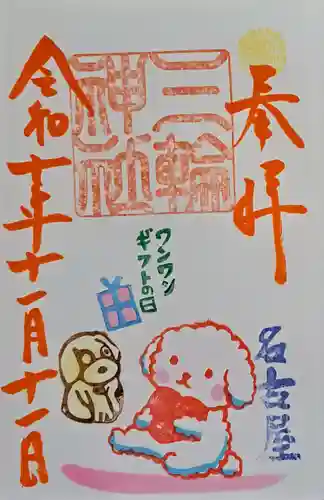 奉拝
三輪
神社
名古屋
ワンワン
ギフトの日
令和七年十一月十一日